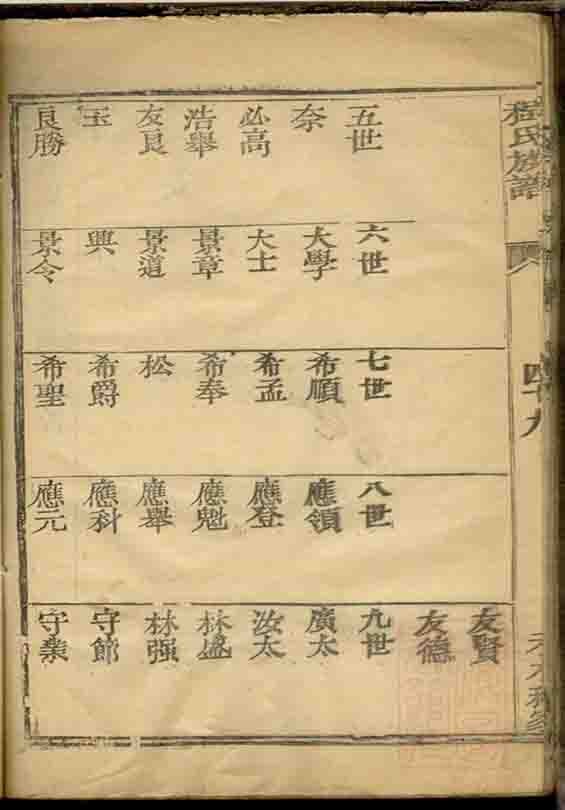 程氏族譜
四十九
友賢
友德
五世
奈
必高
浩舉
友良
玉
良勝
六世
大學
大士
景章
景道
興
景令
七世
希順
希孟
希奉
松
希爵
希聖
八世
應領
應登
應魁
應舉
應科
應元
九世
廣太
汝太
林盛
林强
守節
守業